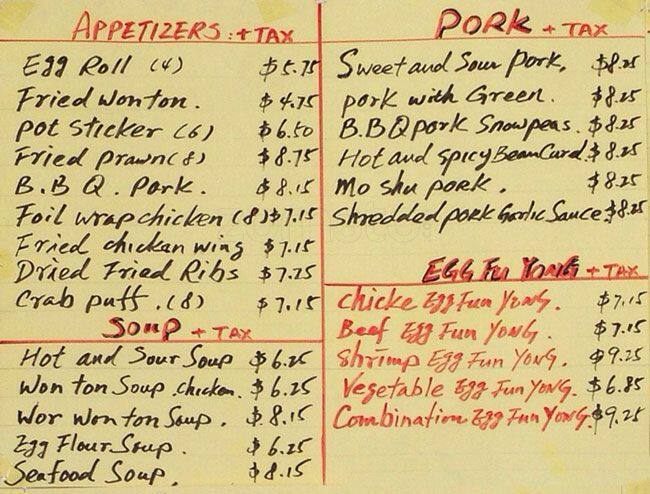 APPETIZERS: + TAX
Egg Roll (4) $5.75
Fried Wonton. $4.75
Pot Sticker (6) $6.50
Fried Prawn (8) $8.75
B.B Q. Pork. $8.15
Foil wrap chicken (8) $7.15
Fried chicken wing $7.15
Dried Fried Ribs $7.25
Crab puff. (8) $7.15
SOUP + TAX
Hot and Sour Soup $6.25
Won ton Soup .chicken. $6.25
Wor Won ton Soup. $8.15
Egg Flour Soup. $6.25
Seafood Soup. $8.15
PORK + TAX
Sweet and Sour Pork. $8.25
pork with Green. $8.25
B.B Q pork Snowpeas. $8.25
Hot and Spicy Bean Curd. $8.25
Mo Shu pork. $8.25
Shredded pork Garlic Sauce. $8.25
EGG FU YONG + TAX
Chicke Egg Fun Yong. $7.15
Beef Egg Fun Yong. $7.15
Shrimp Egg Fun Yong. $9.25
Vegetable Egg Fun Yong. $6.85
Combination Egg Fun Yong. $9.25